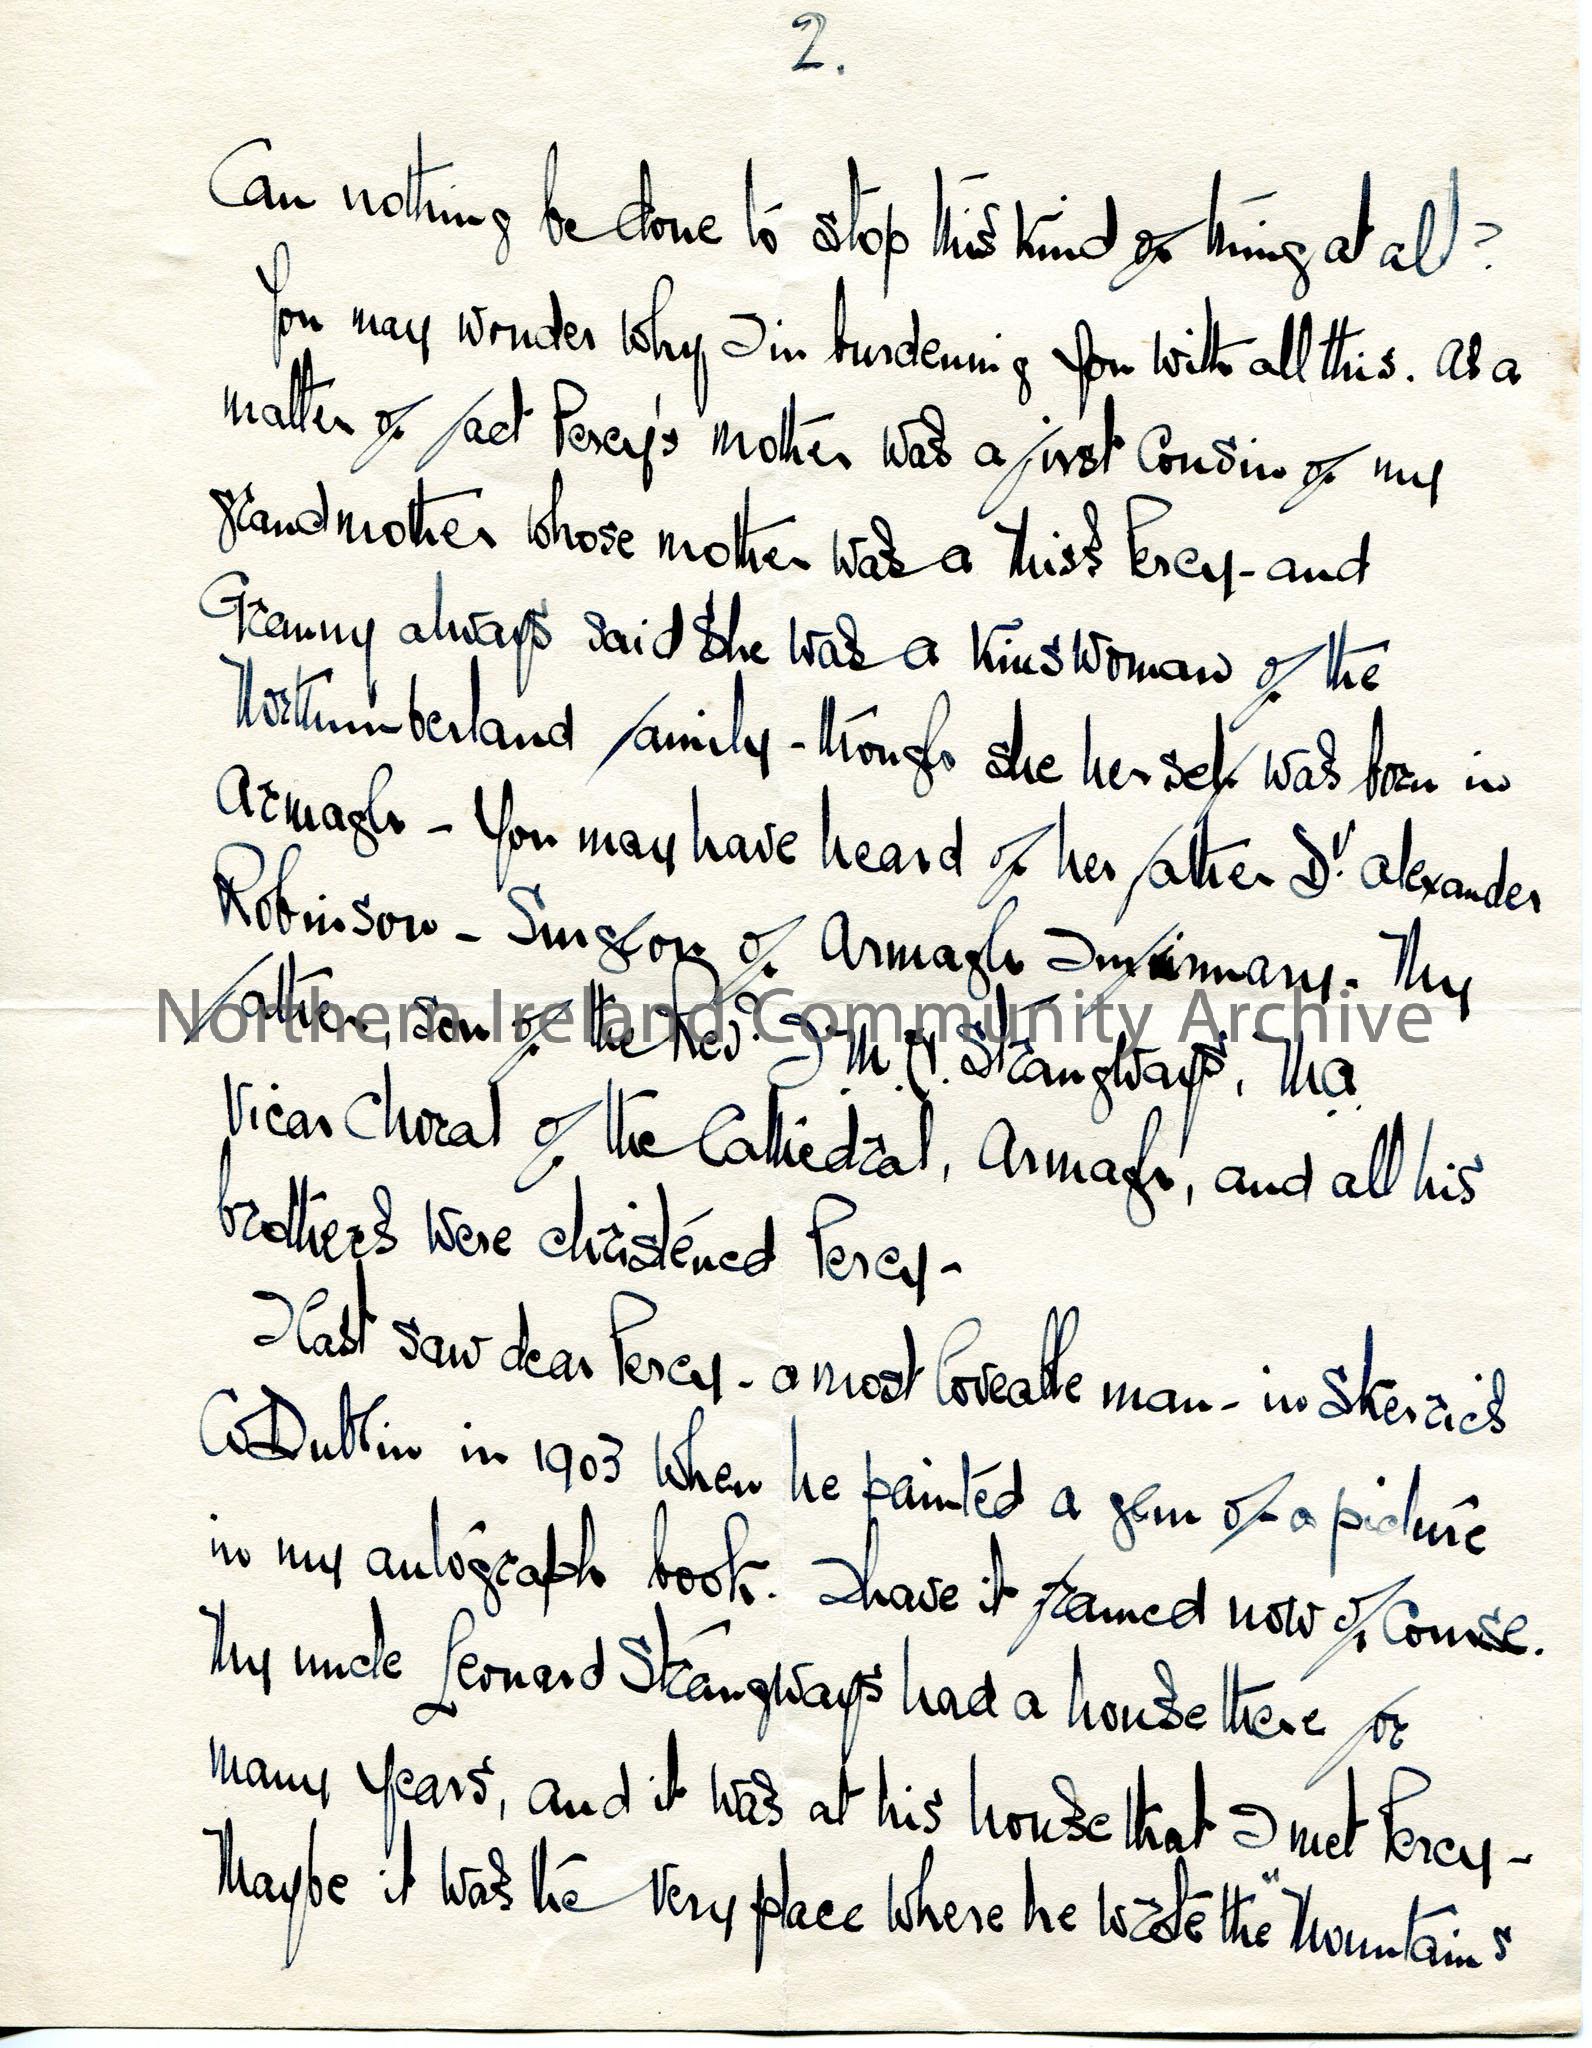 2.
Can nothing be done to stop this kind of thing at all?
You may wonder why I'm burdening you with all this. As a
matter of fact Percy's mother was a first cousin of my
grandmother whose mother was a Miss Percy - and
Granny always said she was a kinswoman of the
Northumberland family - though she herself was born in
Armagh - You may have heard of her father Dr. Alexander
Robinson - Surgeon of Armagh Infirmary. My
father, son of the Revd. J.M.H. Strangways, M.A.
Northern Ireland Community Archive
Vicar Choral of the Cathedral, Armagh, and all his
brothers were christened Percy -
I last saw dear Percy - a most loveable man - in Skerries
Co Dublin in 1903 when he painted a gem of a picture
in my autograph book. I have it framed now of course.
My uncle Leonard Strangways had a house there for
many years, and it was at his house that I met Percy -
Maybe it was the very place where he wrote the "Mountains